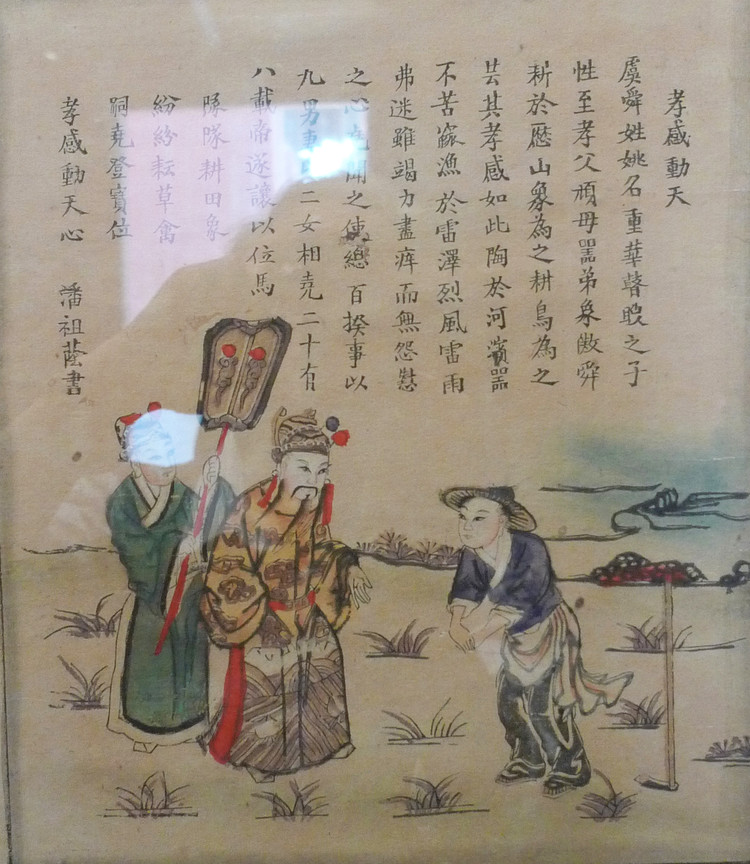 孝感動天
虞舜姓姚名重華瞽瞍之子
性至孝父頑母嚚弟象傲舜
耕於歷山象為之耕鳥為之
芸其孝感如此陶於河濱器
不苦窳漁於雷澤烈風雷雨
弗迷雖竭力盡瘁而無怨懟
之心堯聞之使總百揆事以
九男事二女相堯二十有
八載帝遂讓以位馬
隊隊耕田象
紛紛耘草禽
嗣堯登寶位
孝感動天心 潘祖蔭書